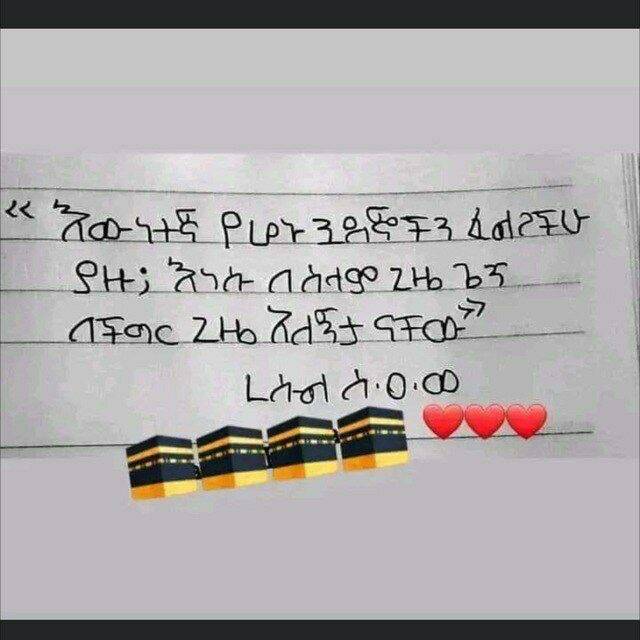 «እውነተኛ የሆኑ ጓደኞችን ፈልጋችሁ
ያዙ; እነሱ በሰላም ጊዜ ጌጥ
በችግር ጊዜ አለኝታ ናቸው»
ረሱል ሰ.ዐ.ወ